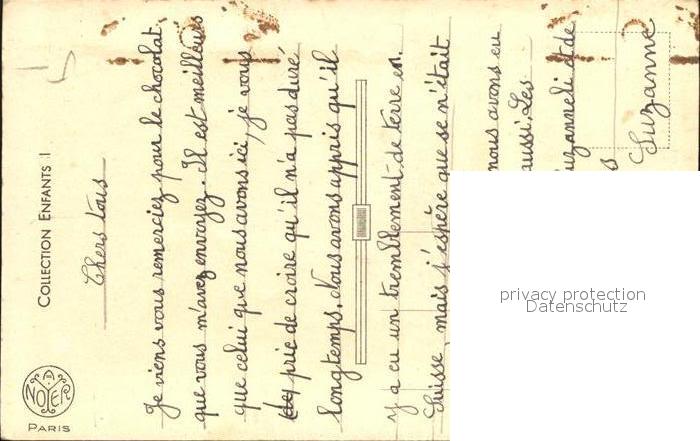 COLLECTION ENFANTS I
A. NOYER
PARIS
Chers tous
Je viens vous remerciez pour le chocolat
que vous m'avez envoyez. Il est meilleurs
que celui que nous avons ici, je vous
prie de croire qu'il n'a pas duré
longtemps. Nous avons appris qu'il
y a eu un tremblement de terre en
Suisse, mais j'espère que se n'était
nous avons eu
aussi. Les
et de
Suzanne
privacy protection
Datenschutz